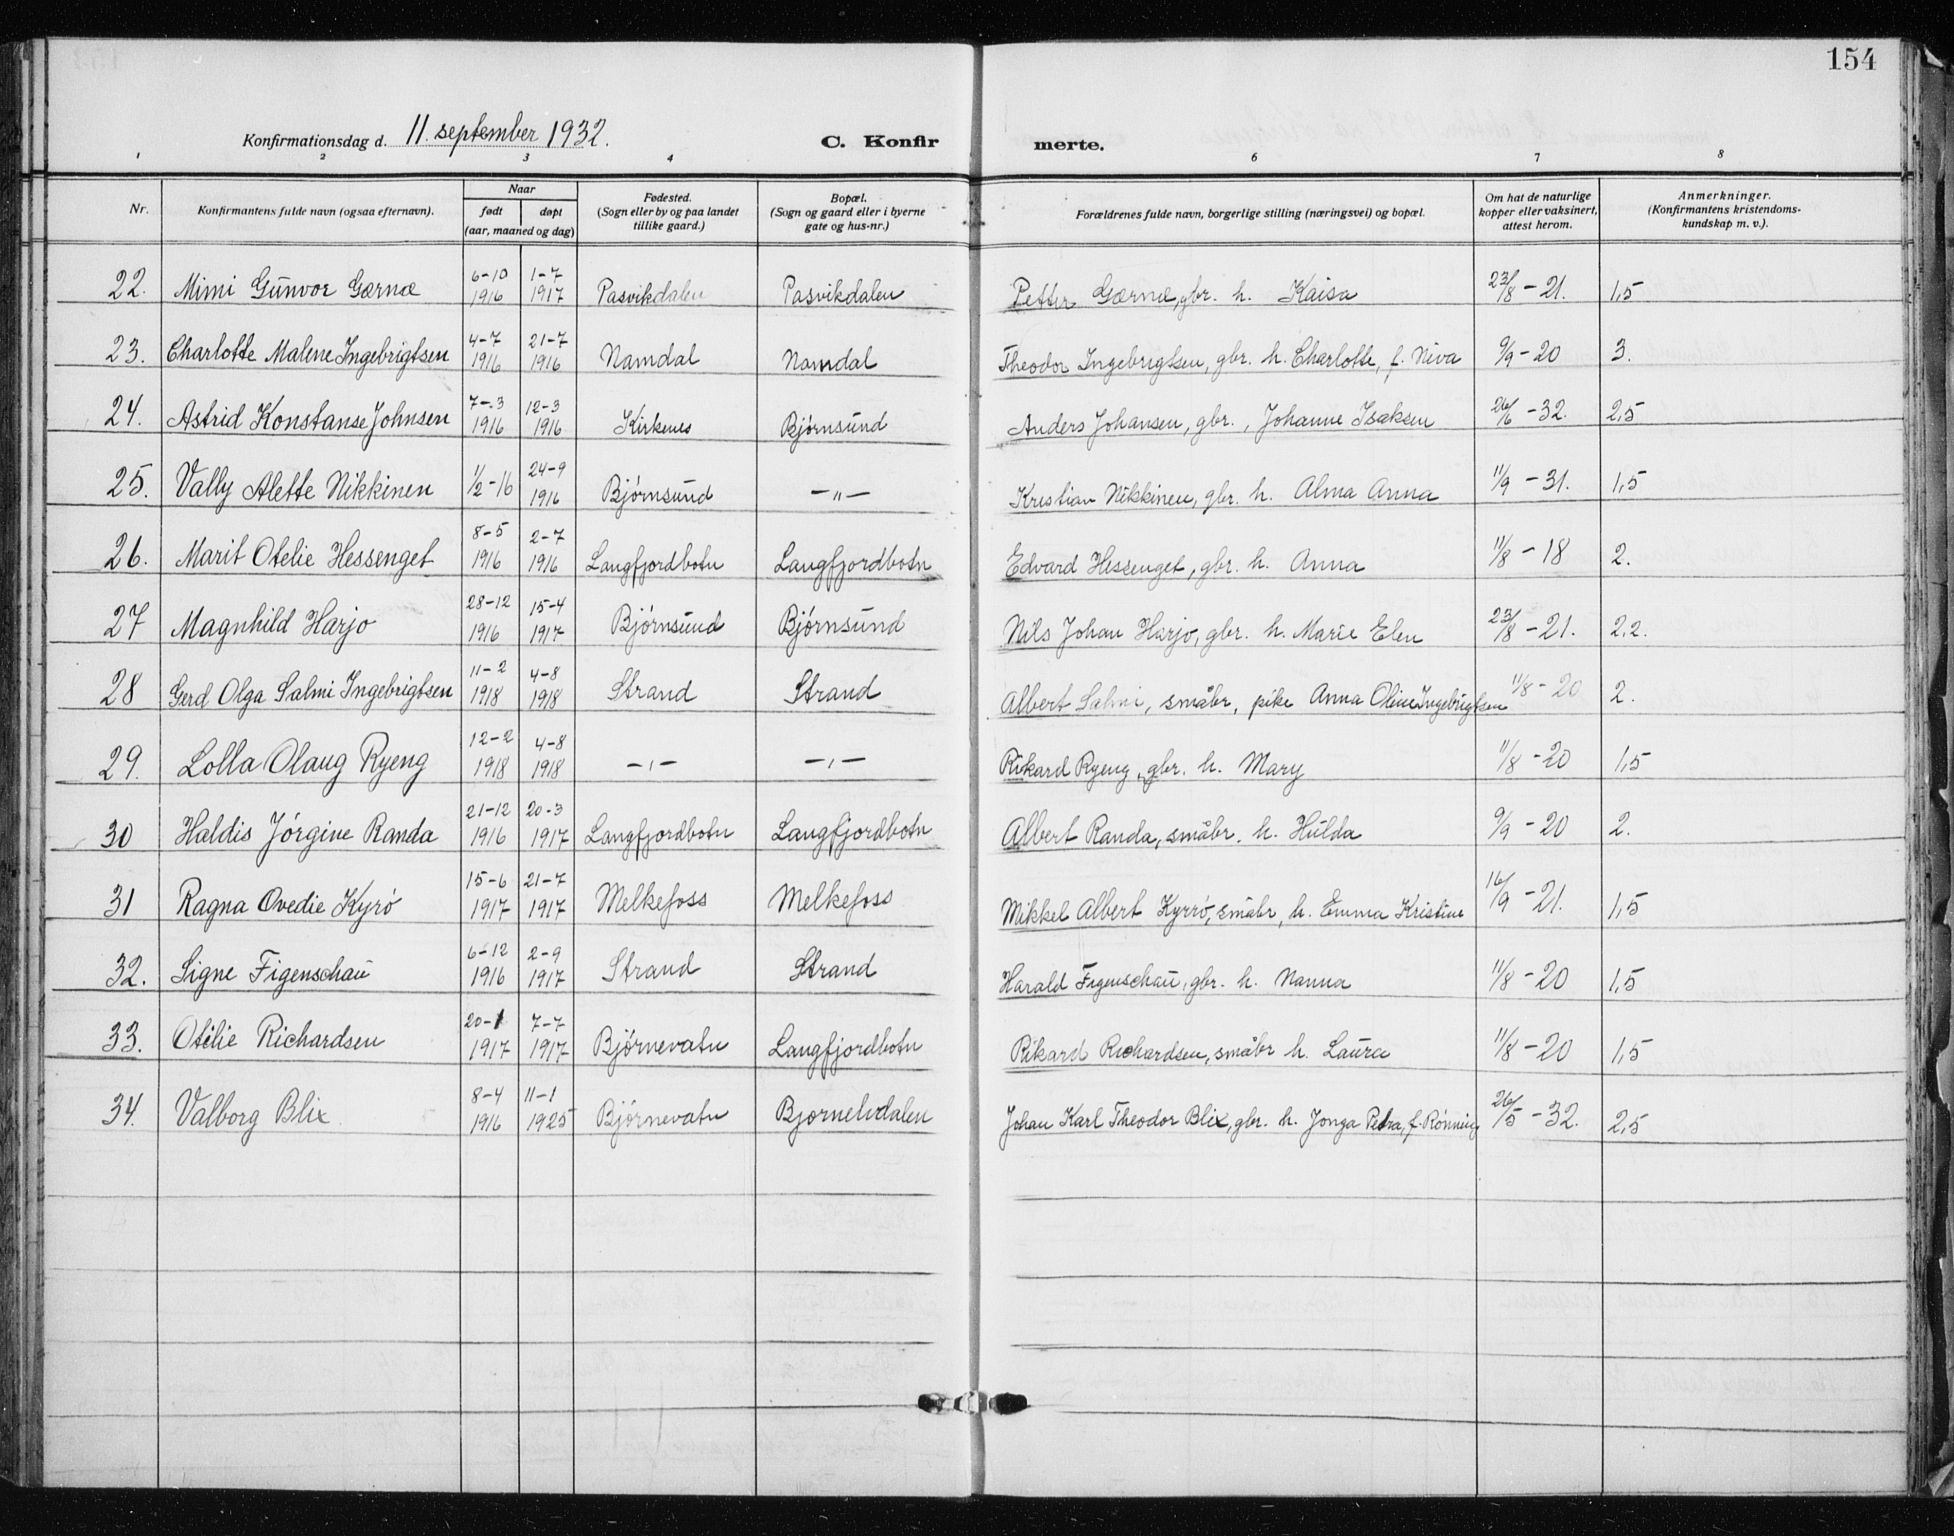 154
Konfirmationsdag d. 11. september 1932. C. Konfirmerte.
1 2 3 4 6 7 8
Nr. Konfirmantens fulde navn (ogsaa efternavn). Naar født døpt (aar, maaned og dag) Fødested. (Sogn eller by og paa landet tillike gaard.) Bopæl. (Sogn og gaard eller i byerne gate og hus-nr.) Forældrenes fulde navn, borgerlige stilling (næringsvei) og bopæl. Om hat de naturlige kopper eller vaksinert, attest herom. Anmerkninger. (Konfirmantens kristendoms-kundskap m. v.).
22. Mimi Gunvor Gærnæ 6-10 1916 1-7 1917 Pasvikdalen Pasvikdalen Petter Gærnæ, gbr. h. Kaisa 23/8 - 21. 1,5
23. Charlotte Malene Ingebrigtsen 4-7 1916 21-7 1916 Namdal Namdal Theodor Ingebrigtsen, gbr. h. Charlotte, f. Niva 9/9 - 20 3.
24. Astrid Konstanse Johnsen 7-3 1916 12-3 1916 Kirkenes Bjørnsund Anders Johansen, gbr., Johanne Isaksen 26/6 - 32. 2,5
25. Vally Alette Nikkinen 1/2 - 16 24-9 1916 Bjørnsund -"- Kristian Nikkinen, gbr. h. Alma Anna 11/9 - 31. 1,5
26. Marit Otelie Hessenget 8-5 1916 2-7 1916 Langfjordbotn Langfjordbotn Edvard Hessenget, gbr. h. Anna 11/8 - 18 2.
27 Magnhild Harjo 28-12 1916 15-4 1917 Bjørnsund Bjørnsund Nils Johan Harjo, gbr. h. Marie Elen 23/8 - 21. 2,2.
28 Gerd Olga Salmi Ingebrigtsen 11-2 1918 4-8 1918 Strand Strand Albert Salmi, småbr, pike Anna Oline Ingebrigtsen 11/8 - 20 2.
29. Lolla Olaug Ryeng 12-2 1918 4-8 1918 -,- -,- Rikard Ryeng, gbr. h. Mary 11/8 - 20 1,5
30 Haldis Jørgine Randa 21-12 1916 20-3 1917 Langfjordbotn Langfjordbotn Albert Randa, småbr. h. Hulda 9/9 - 20 2.
31 Ragna Ovedie Kyrø 15-6 1917 21-7 1917 Melkefoss Melkefoss Mikkel Albert Kyrrø, småbr, h. Emma Kristine 16/9 - 21. 1,5
32. Signe Figenschau 6-12 1916 2-9 1917 Strand Strand Harald Figenschau, gbr. h. Nanna 11/8 - 20 1,5
33. Otelie Richardsen 20-1 1917 7-7 1917 Bjørnevatn Langfjordbotn Rikard Richardsen, småbr h. Laura 11/8 - 20 1,5
34. Valborg Blix 8-4 1916 11-1 1925 Bjørnevatn Bjørnelvdalen Johan Karl Theodor Blix, gbr. h. Jonga Petra, f. Rønning 26/5 - 32. 2,5